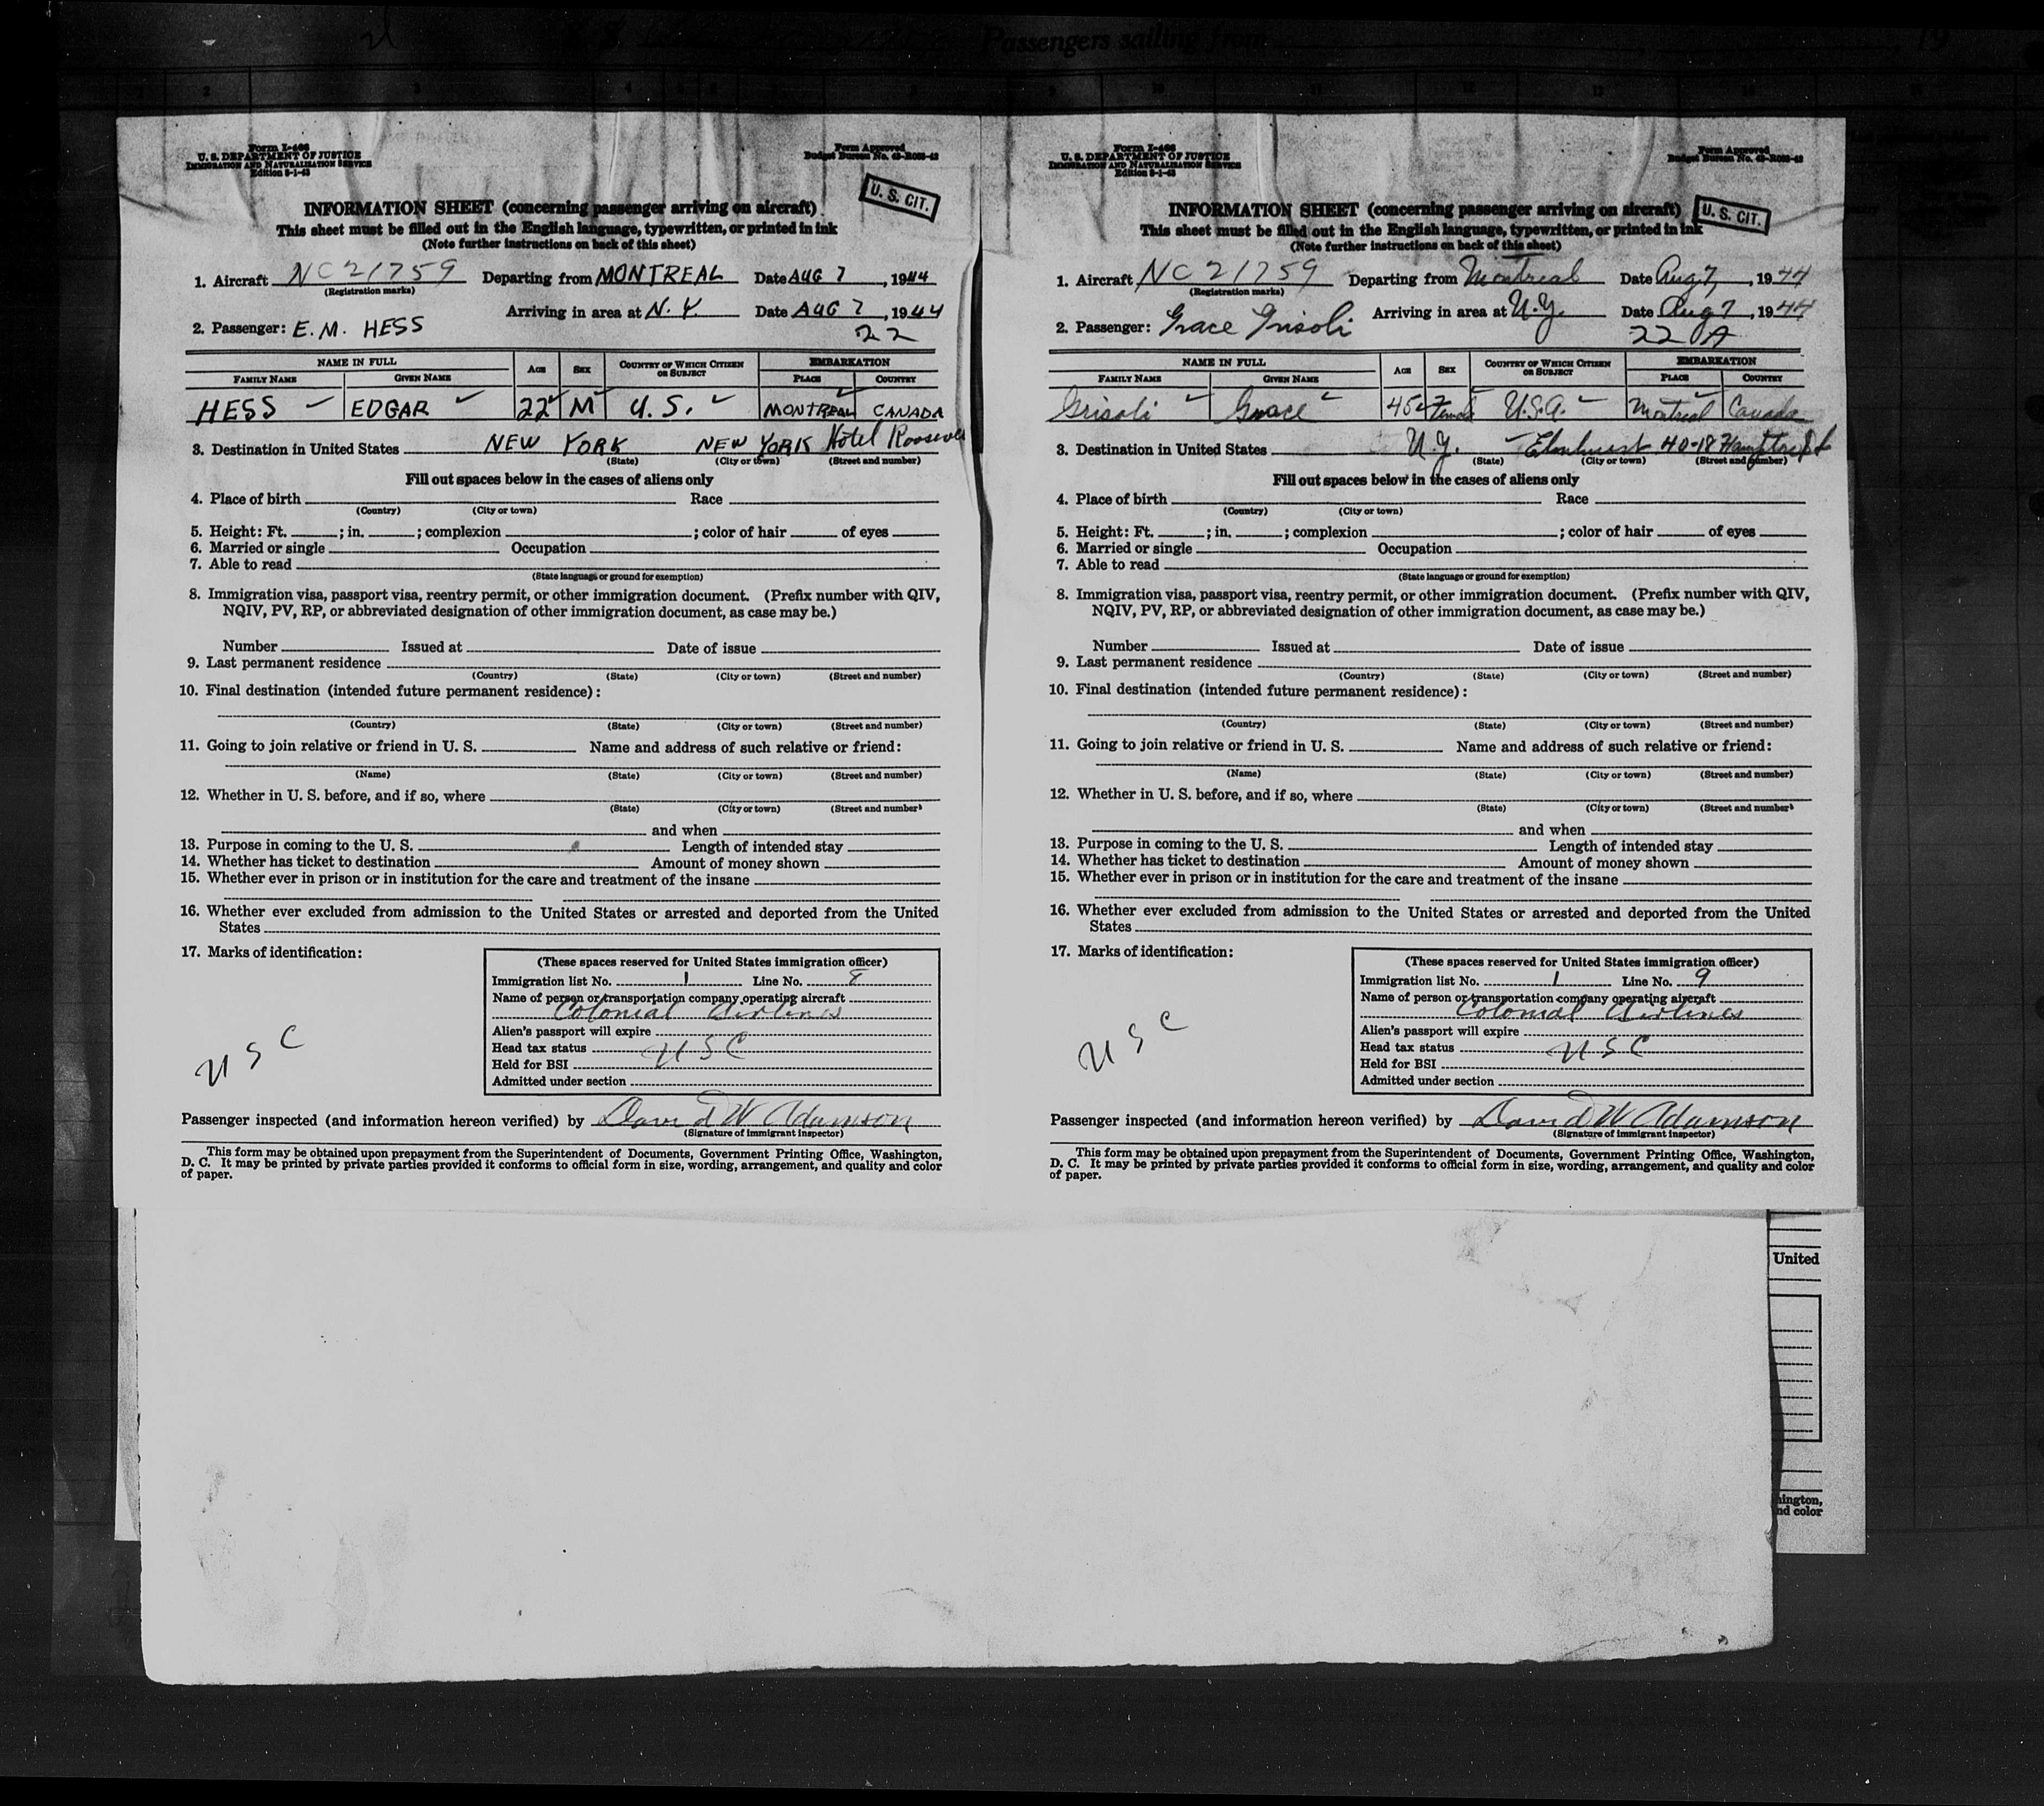 Passengers sailing from
Form I-466
U. S. DEPARTMENT OF JUSTICE
IMMIGRATION AND NATURALIZATION SERVICE
Edition 8-1-43
Form Approved
U. S. CIT.
INFORMATION SHEET (concerning passenger arriving on aircraft)
This sheet must be filled out in the English language, typewritten, or printed in ink
(Note further instructions on back of this sheet)
1. Aircraft NC 21759 Departing from MONTREAL Date AUG 7, 1944
(Registration marks)
Arriving in area at N. Y. Date AUG 7, 1944
2. Passenger: E. M. HESS
22
NAME IN FULL AGE SEX COUNTRY OF WHICH CITIZEN OR SUBJECT EMBARKATION
FAMILY NAME GIVEN NAME PLACE COUNTRY
HESS EDGAR 22 M U. S. MONTREAL CANADA
3. Destination in United States NEW YORK NEW YORK Hotel
(State) (City or town) (Street and number)
Fill out spaces below in the cases of aliens only
4. Place of birth Race
(Country) (City or town)
5. Height: Ft. ; in. ; complexion ; color of hair of eyes
6. Married or single Occupation
7. Able to read
(State language or ground for exemption)
8. Immigration visa, passport visa, reentry permit, or other immigration document. (Prefix number with QIV,
NQIV, PV, RP, or abbreviated designation of other immigration document, as case may be.)
Number Issued at Date of issue
9. Last permanent residence
(Country) (State) (City or town) (Street and number)
10. Final destination (intended future permanent residence):
(Country) (State) (City or town) (Street and number)
11. Going to join relative or friend in U. S. Name and address of such relative or friend:
(Name) (State) (City or town) (Street and number)
12. Whether in U. S. before, and if so, where
(State) (City or town) (Street and number)
and when
13. Purpose in coming to the U. S. Length of intended stay
14. Whether has ticket to destination Amount of money shown
15. Whether ever in prison or in institution for the care and treatment of the insane
16. Whether ever excluded from admission to the United States or arrested and deported from the United
States
17. Marks of identification:
(These spaces reserved for United States immigration officer)
Immigration list No. 1 Line No. 8
Name of person or transportation company operating aircraft
Colonial Airlines
Alien's passport will expire
Head tax status USC
Held for BSI
Admitted under section
USC
Passenger inspected (and information hereon verified) by David W Adamson
(Signature of immigrant inspector)
This form may be obtained upon prepayment from the Superintendent of Documents, Government Printing Office, Washington,
D. C. It may be printed by private parties provided it conforms to official form in size, wording, arrangement, and quality and color
of paper.
Form I-466
U. S. DEPARTMENT OF JUSTICE
IMMIGRATION AND NATURALIZATION SERVICE
Edition 8-1-43
Form Approved
U. S. CIT.
INFORMATION SHEET (concerning passenger arriving on aircraft)
This sheet must be filled out in the English language, typewritten, or printed in ink
(Note further instructions on back of this sheet)
1. Aircraft NC 21759 Departing from Montreal Date Aug 7, 1944
(Registration marks)
Arriving in area at N.Y. Date Aug 7, 1944
2. Passenger: Grace Grisoli
22 A
NAME IN FULL AGE SEX COUNTRY OF WHICH CITIZEN OR SUBJECT EMBARKATION
FAMILY NAME GIVEN NAME PLACE COUNTRY
Grisoli Grace 45 Female U.S.A. Montreal Canada
3. Destination in United States N.Y. Elmhurst 40-18
(State) (City or town) (Street and number)
Fill out spaces below in the cases of aliens only
4. Place of birth Race
(Country) (City or town)
5. Height: Ft. ; in. ; complexion ; color of hair of eyes
6. Married or single Occupation
7. Able to read
(State language or ground for exemption)
8. Immigration visa, passport visa, reentry permit, or other immigration document. (Prefix number with QIV,
NQIV, PV, RP, or abbreviated designation of other immigration document, as case may be.)
Number Issued at Date of issue
9. Last permanent residence
(Country) (State) (City or town) (Street and number)
10. Final destination (intended future permanent residence):
(Country) (State) (City or town) (Street and number)
11. Going to join relative or friend in U. S. Name and address of such relative or friend:
(Name) (State) (City or town) (Street and number)
12. Whether in U. S. before, and if so, where
(State) (City or town) (Street and number)
and when
13. Purpose in coming to the U. S. Length of intended stay
14. Whether has ticket to destination Amount of money shown
15. Whether ever in prison or in institution for the care and treatment of the insane
16. Whether ever excluded from admission to the United States or arrested and deported from the United
States
17. Marks of identification:
(These spaces reserved for United States immigration officer)
Immigration list No. 1 Line No. 9
Name of person or transportation company operating aircraft
Colonial Airlines
Alien's passport will expire
Head tax status USC
Held for BSI
Admitted under section
USC
Passenger inspected (and information hereon verified) by David W Adamson
(Signature of immigrant inspector)
This form may be obtained upon prepayment from the Superintendent of Documents, Government Printing Office, Washington,
D. C. It may be printed by private parties provided it conforms to official form in size, wording, arrangement, and quality and color
of paper.
United
nd color